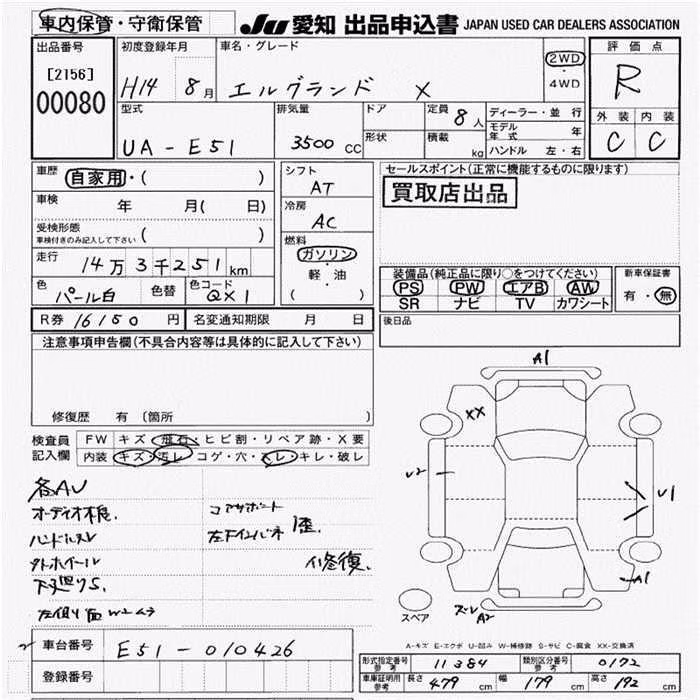 車内保管・守衛保管 JU 愛知 出品申込書 JAPAN USED CAR DEALERS ASSOCIATION
出品番号 [2156] 00080
初度登録年月 H14 8月
車名・グレード エルグランド X
2WD・4WD
評価点 R
外装 内装
C C
型式 UA-E51
排気量 3500 CC
ドア 形状
定員 8人
積載 kg
ディーラー・並行
モデル年式 年
ハンドル 左・右
車歴 自家用・( )
車検 年 月( 日)
受検形態
車検付きのみ記入して下さい ( )
走行 14万3千251km
色 パール白 色替 色コード QX1
シフト AT
冷房 AC
燃料
ガソリン
・
軽油
( )
セールスポイント(正常に機能するものに限ります)
買取店出品
装備品(純正品に限り○をつけてください)
PS PW エアB AW
SR ナビ TV カワシート
新車保証書
有・無
R券 16150円 名変通知期限 月 日
後日品
注意事項申告欄(不具合内容等は具体的に記入して下さい)
修復歴 有(箇所
検査員記入欄
FW キズ・飛石・ヒビ割・リペア跡・X要
内装 キズ・汚レ・コゲ・穴・スレ・キレ・破レ
各AU
ハンドルスレ
左下インパネ
修復
下廻りS.
A1
XX
U2
U1
A1
A2
スレ
スペア
A-キズ E-エクボ U-凹み W-補修跡 S-サビ C-腐食 XX-交換済
車台番号 E51-010426
登録番号
形式指定番号 参考 11384 類別区分番号 参考 0172
車庫証明用 参考 長さ 479cm 幅 179cm 高さ 192cm